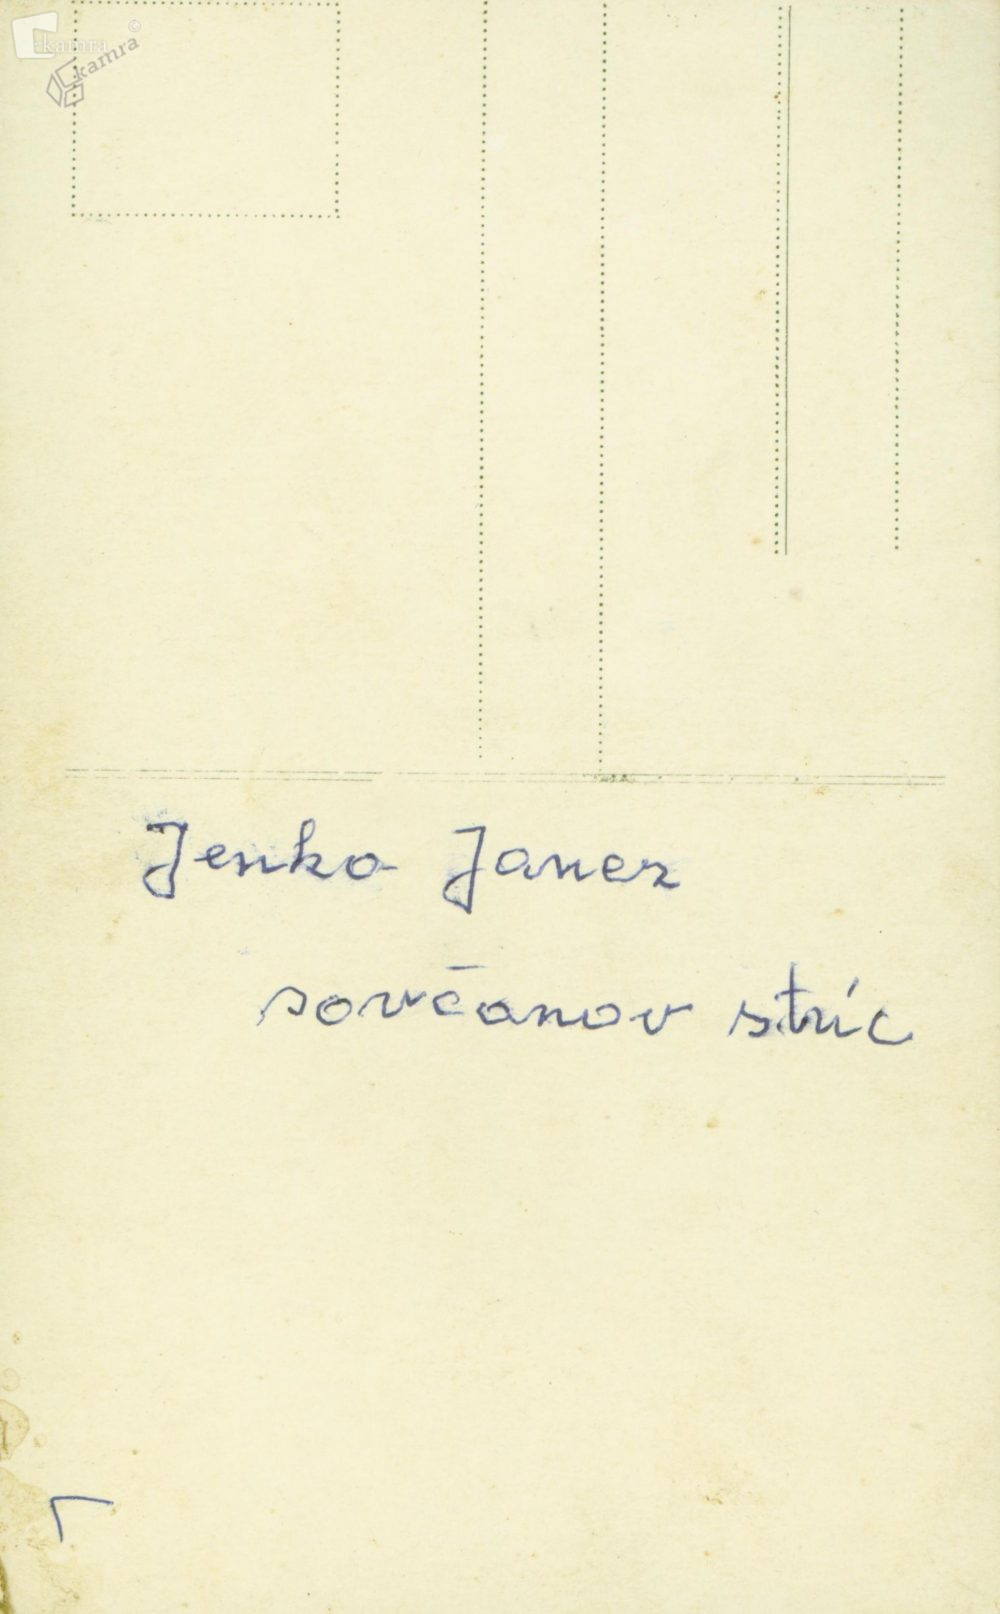 kamra
kamra
©
Jenko Janez
sovčanov stric